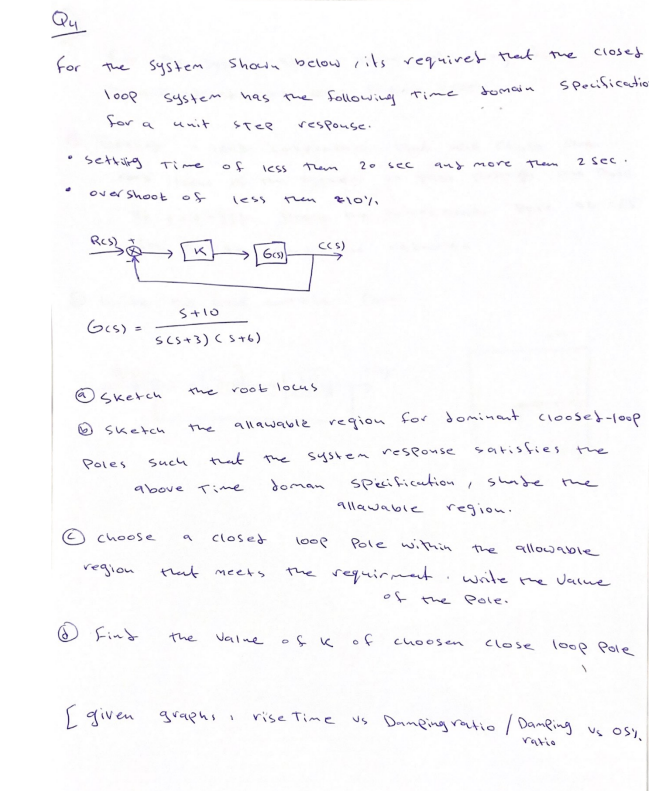 Q4
For the system shown below, its required that the closed
loop system has the following Time domain specificatio
for a unit step response.
• settling Time of less then 20 sec and more then 2 sec.
• overshoot of less then 10%
R(s) + - K G(s) C(s)
G(s) = s+10 / s(s+3)(s+6)
ⓐ sketch the root locus
ⓑ sketch the allawable region for dominent cloosed-loop
Poles such that the system response satisfies the
above Time doman specification, shade the
allawable region.
ⓒ choose a closed loop Pole within the allowable
region that meets the requirment. write the value
of the Pole.
ⓓ Find the value of K of choosen close loop Pole
[ given graphs, rise Time vs Damping ratio / Damping ratio vs OS%.